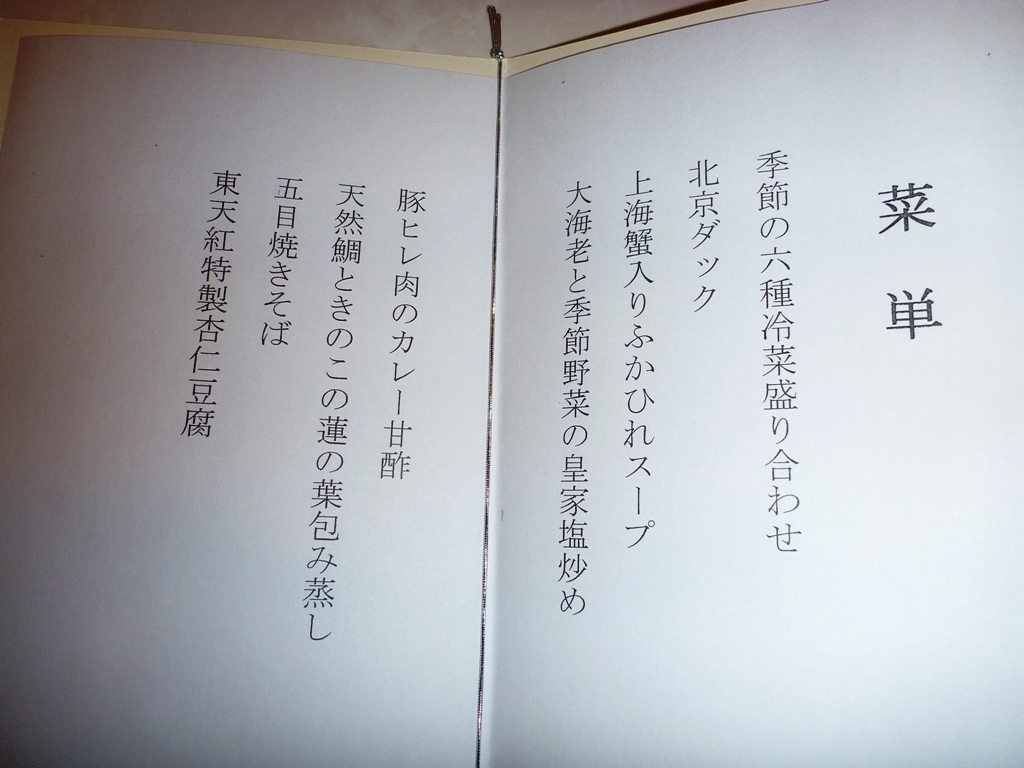 菜単
季節の六種冷菜盛り合わせ
北京ダック
上海蟹入りふかひれスープ
大海老と季節野菜の皇家塩炒め
豚ヒレ肉のカレー甘酢
天然鯛ときのこの蓮の葉包み蒸し
五目焼きそば
東天紅特製杏仁豆腐